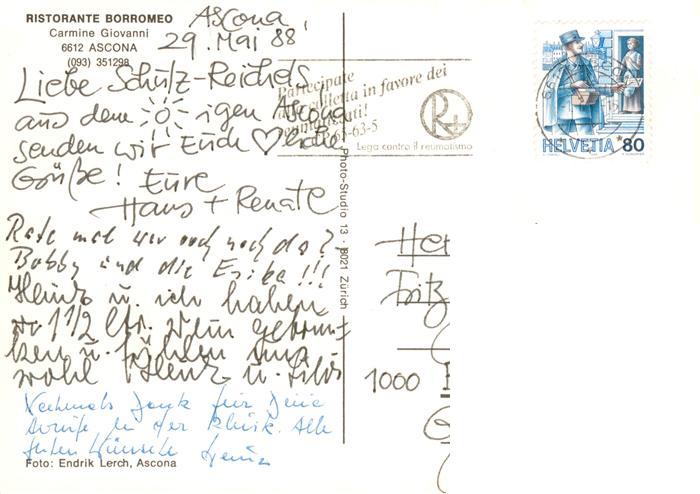 RISTORANTE BORROMEO
Carmine Giovanni
6612 ASCONA
(093) 351298
Ascona,
29. Mai 88
Liebe Schütz-Reichels
aus dem igen Ascona
senden wir Euch ♡liche
Grüße! Eure
Hans + Renate
Rate mal wer auch noch da?
Bobby und die Erika!!!
Heinz u. ich haben
1 1/2 Ltr. Wein getrun-
ken u. fühlen uns
wohl Heinz u.
Nochmals Dank für Deine
in der Klinik. Alle
guten Wünsche
Foto: Endrik Lerch, Ascona
Photo-Studio 13 · 8021 Zürich
Partecipate
colletta in favore dei
reumatizzati!
63-5
R+
Lega contro il reumatismo
HELVETIA 80
Her
Fritz
1000